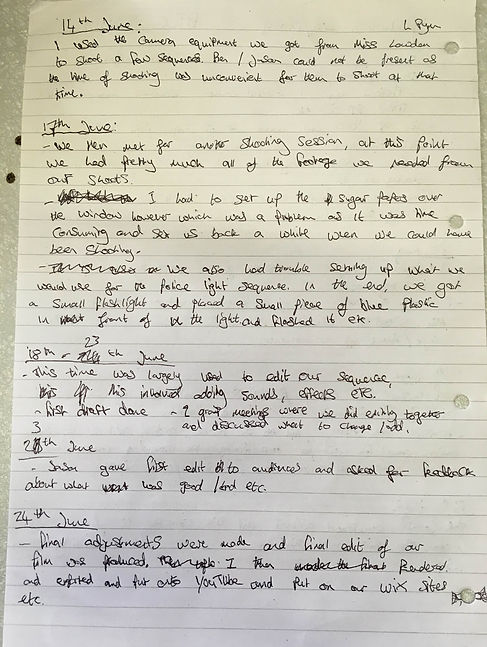 14th June:
L Rym
I used the camera equipment we got from Miss London
to shoot a few sequences. Ben / Jason could not be present as
the time of shooting was unconvenient for them to shoot at that
time.
17th June:
- We then met for another shooting session, at this point
we had pretty much all of the footage we needed from
our shoots.
- I had to set up the sugar papers over
the window however which was a problem as it was time
consuming and set us back a while when we could have
been shooting.
- We also had trouble setting up what we
would use for the police light sequence. In the end, we got
a small flashlight and placed a small piece of blue plastic
in front of the light and flashed it etc.
18th - 23th June
- This time was largely used to edit our sequence,
this involved adding sounds, effects etc.
- first draft done - 2 group meetings where we did editing together
and discussed what to change / add.
23th June
- Jason gave first edit to audiences and asked for feedback
about what was good / bad etc.
24th June
- final adjustments were made and final edit of our
film was produced. I then rendered
and exported and put onto YouTube and put on our Wix sites
etc.